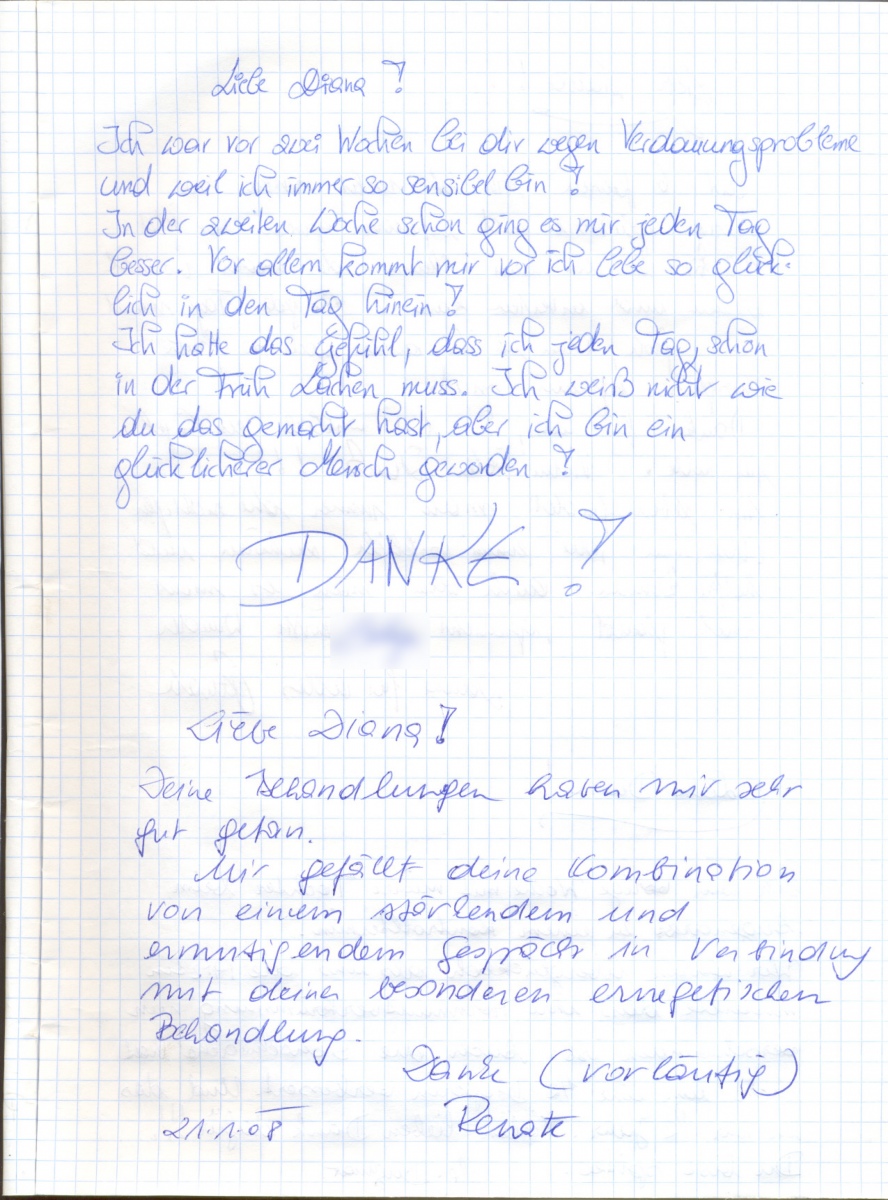 Liebe Diana!
Ich war vor zwei Wochen bei dir wegen Verdauungsprobleme
und weil ich immer so sensibel bin!
In der zweiten Woche schon ging es mir jeden Tag
besser. Vor allem kommt mir vor ich lebe so glück-
lich in den Tag hinein!
Ich hatte das Gefühl, dass ich jeden Tag, schon
in der Früh Lachen muss. Ich weiß nicht wie
du das gemacht hast, aber ich bin ein
glücklicherer Mensch geworden!
DANKE!
Liebe Diana!
Deine Behandlungen haben mir sehr
gut getan.
Mir gefällt deine Kombination
von einem stärkendem und
ermutigendem Gespräch in Verbindung
mit deiner besonderen energetischen
Behandlung.
Danke (vorläufig)
21.1.08 Renate